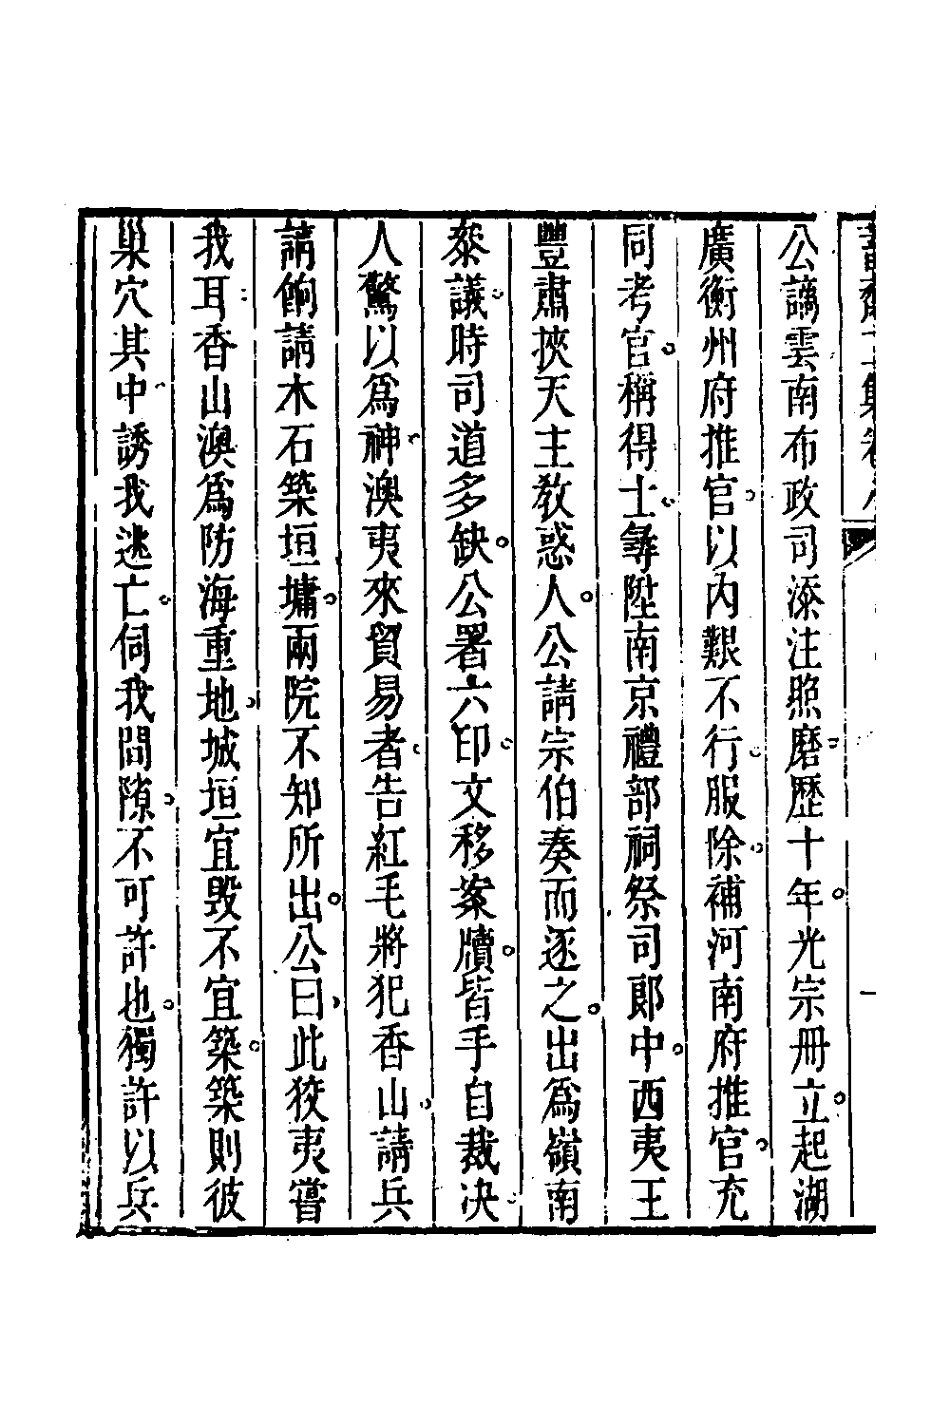 公謫雲南布政司添注照磨歷十年光宗冊立起湖
廣衡州府推官以內艱不行服除補河南府推官充
同考官稱得士尋陞南京禮部祠祭司郞中西夷王
豐肅挾天主敎惑人公請宗伯奏而逐之出爲嶺南
叅議時司道多缺公署六印文移案牘皆手自裁決
人驚以爲神澳夷來貿易者告紅毛將犯香山請兵
請餉請木石築垣墉兩院不知所出公曰此狡夷嘗
我耳香山澳爲防海重地城垣宜毀不宜築築則彼
巢穴其中誘我逃亡伺我間隙不可許也獨許以兵